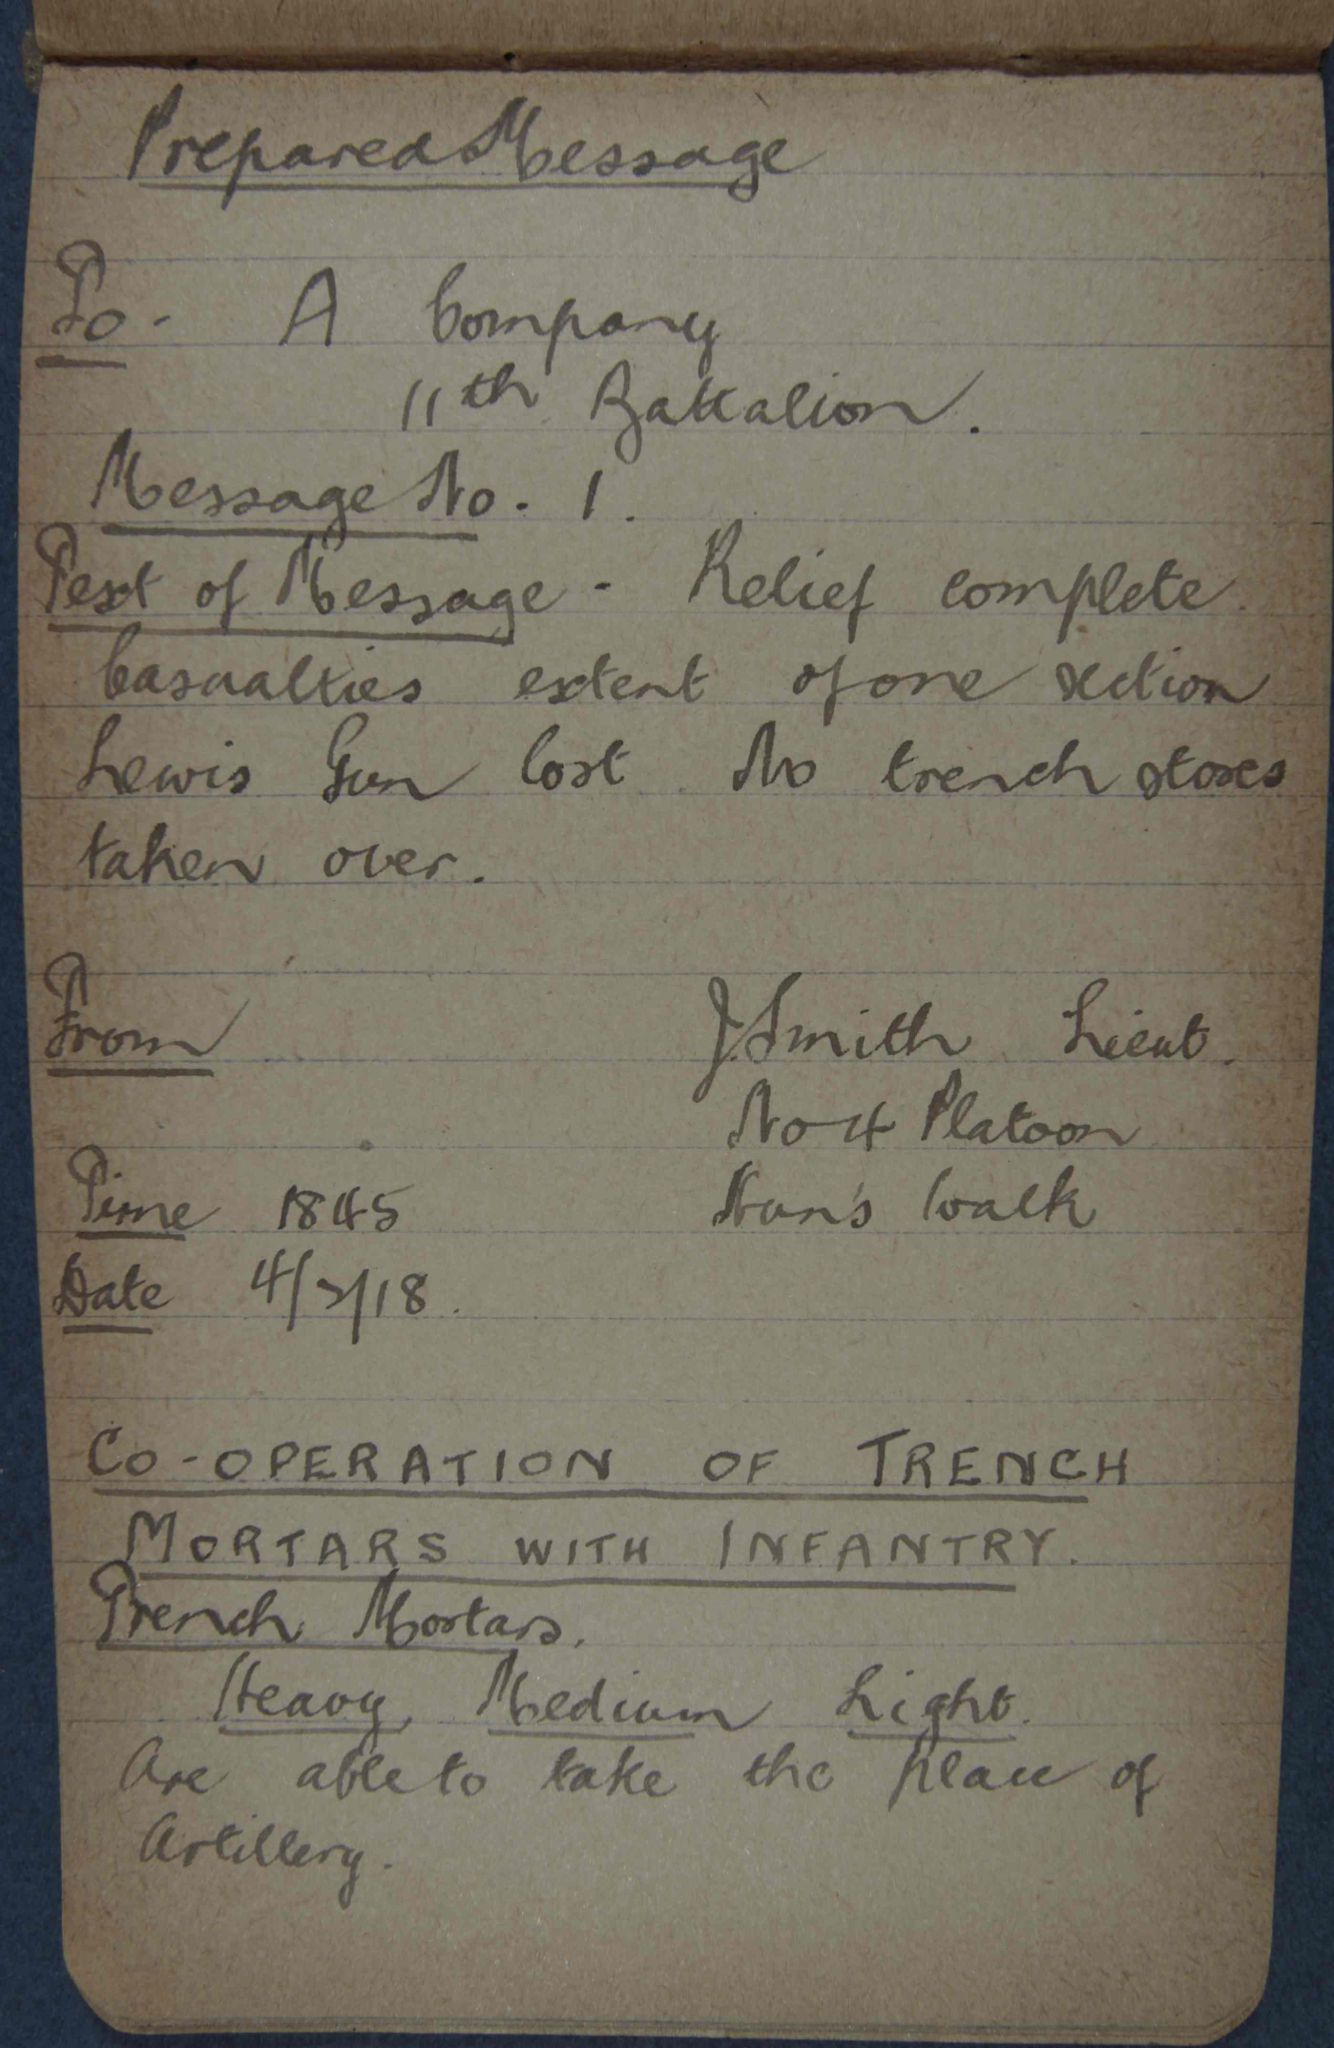 Prepared Message
To - A Company
11th Battalion.
Message No. 1.
Text of Message - Relief complete.
Casualties extent of one section
Lewis Gun lost. No trench stores
taken over.
From J. Smith Lieut.
No 4 Platoon
Time 1845 Nun's Walk
Date 4/3/18.
CO-OPERATION OF TRENCH
MORTARS WITH INFANTRY.
Trench Mortars.
Heavy, Medium Light.
Are able to take the place of
Artillery.